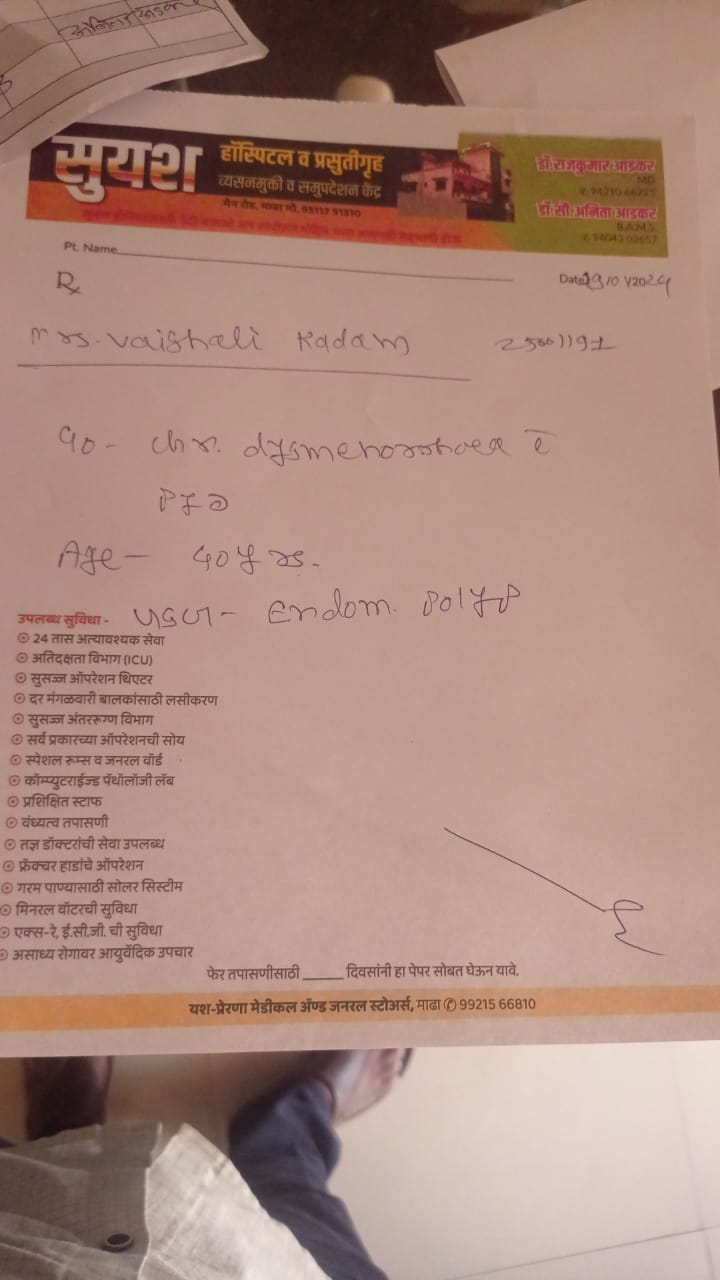 सुयश
हॉस्पिटल व प्रसुतीगृह
व्यसनमुक्ती व समुपदेशन केंद्र
मेन रोड, माढा मो. 93117 91810
डॉ. राजकुमार आडकर
MD
डॉ. सौ. अनिता आडकर
B.A.M.S.
✆ 94043 02657
Pt. Name
Rx
Date 29/01/2024
Mrs. Vaishali Kadam
c/o - chr. dysmenorrhoea c̄
PID
Age - 40 yrs.
USG - Endom. Polyp
उपलब्ध सुविधा -
24 तास अत्यावश्यक सेवा
अतिदक्षता विभाग (ICU)
सुसज्ज ऑपरेशन थिएटर
दर मंगळवारी बालकांसाठी लसीकरण
सुसज्ज अंतररूग्ण विभाग
सर्व प्रकारच्या ऑपरेशनची सोय
स्पेशल रूम्स व जनरल वॉर्ड
कॉम्प्युटराईज्ड पॅथॉलॉजी लॅब
प्रशिक्षित स्टाफ
वंध्यत्व तपासणी
तज्ञ डॉक्टरांची सेवा उपलब्ध
फ्रॅक्चर हाडांचे ऑपरेशन
गरम पाण्यासाठी सोलर सिस्टीम
मिनरल वॉटरची सुविधा
एक्स-रे, ई.सी.जी. ची सुविधा
असाध्य रोगावर आयुर्वेदिक उपचार
फेर तपासणीसाठी ______ दिवसांनी हा पेपर सोबत घेऊन यावे.
यश-प्रेरणा मेडीकल ॲण्ड जनरल स्टोअर्स, माढा ✆ 99215 66810